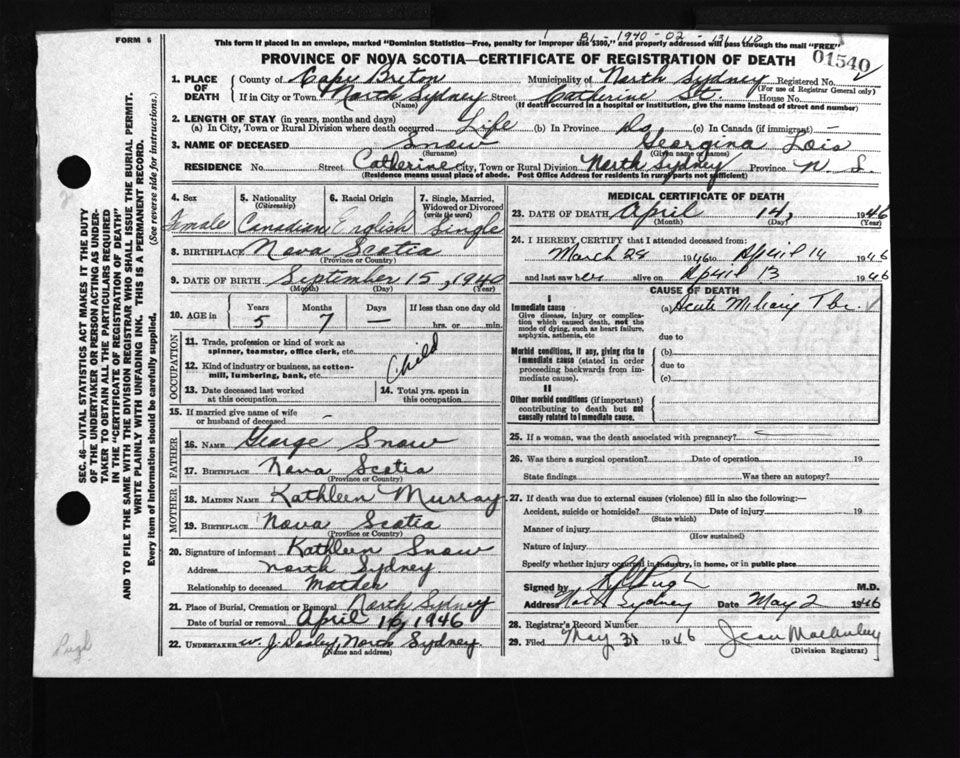 FORM 6
1 BL-1940-02-131110
This form if placed in an envelope, marked "Dominion Statistics—Free, penalty for improper use $300," and properly addressed will pass through the mail "FREE"
01540
PROVINCE OF NOVA SCOTIA—CERTIFICATE OF REGISTRATION OF DEATH
1. PLACE OF DEATH County of Cape Briton Municipality of North Sydney Registered No.
(For use of Registrar General only)
If in City or Town North Sydney Street Catherine St. House No.
(Name) (If death occurred in a hospital or institution, give the name instead of street and number)
2. LENGTH OF STAY (in years, months and days)
(a) In City, Town or Rural Division where death occurred Life (b) In Province Do (c) In Canada (if immigrant) —
3. NAME OF DECEASED Snow Georgina Lois
(Surname) (Given name or names)
RESIDENCE No. Street Catherine City, Town or Rural Division North Sydney Province N. S.
(Residence means usual place of abode. Post Office Address for residents in rural parts not sufficient)
4. Sex Female
5. Nationality (Citizenship) Canadian
6. Racial Origin English
7. Single, Married, Widowed or Divorced (write the word) Single
8. BIRTHPLACE Nova Scotia
(Province or Country)
9. DATE OF BIRTH September 15, 1940
(Month) (Day) (Year)
10. AGE in Years 5 Months 7 Days — If less than one day old
hrs. or min.
OCCUPATION
11. Trade, profession or kind of work as spinner, teamster, office clerk, etc.
12. Kind of industry or business, as cotton-mill, lumbering, bank, etc. Child
13. Date deceased last worked at this occupation
14. Total yrs. spent in this occupation
15. If married give name of wife or husband of deceased —
FATHER
16. NAME George Snow
17. BIRTHPLACE Nova Scotia
(Province or Country)
MOTHER
18. MAIDEN NAME Kathleen Murray
19. BIRTHPLACE Nova Scotia
(Province or Country)
20. Signature of informant Kathleen Snow
Address North Sydney
Relationship to deceased Mother
21. Place of Burial, Cremation or Removal North Sydney
Date of burial or removal April 16, 1946
22. UNDERTAKER W. J. Dooley, North Sydney.
(Name and address)
MEDICAL CERTIFICATE OF DEATH
23. DATE OF DEATH April 14, 1946
(Month) (Day) (Year)
24. I HEREBY CERTIFY that I attended deceased from:
March 28 1946 to April 14 1946
and last saw her alive on April 13 1946
CAUSE OF DEATH
I
Immediate cause (a) Acute Miliary Tbc.
Give disease, injury or complication which caused death, not the mode of dying, such as heart failure, asphyxia, asthenia, etc
due to
Morbid conditions, if any, giving rise to immediate cause (stated in order proceeding backwards from immediate cause)
(b)
due to
(c)
II
Other morbid conditions (if important) contributing to death but not causally related to immediate cause.
25. If a woman, was the death associated with pregnancy?
26. Was there a surgical operation? Date of operation 19
State findings Was there an autopsy?
27. If death was due to external causes (violence) fill in also the following:—
Accident, suicide or homicide? Date of injury 19
(State which)
Manner of injury
(How sustained)
Nature of injury
Specify whether injury occurred in industry, in home, or in public place
Signed by Pugh M.D.
Address North Sydney Date May 2 1946
28. Registrar's Record Number
29. Filed May 3 1946 Jean
(Division Registrar)
SEC. 46—VITAL STATISTICS ACT MAKES IT THE DUTY
OF THE UNDERTAKER OR PERSON ACTING AS UNDER-
TAKER TO OBTAIN ALL THE PARTICULARS REQUIRED
IN THE "CERTIFICATE OF REGISTRATION OF DEATH"
AND TO FILE THE SAME WITH THE DIVISION REGISTRAR WHO SHALL ISSUE THE BURIAL PERMIT.
WRITE PLAINLY WITH UNFADING INK. THIS IS A PERMANENT RECORD.
Every item of information should be carefully supplied. (See reverse side for instructions.)
Pugh